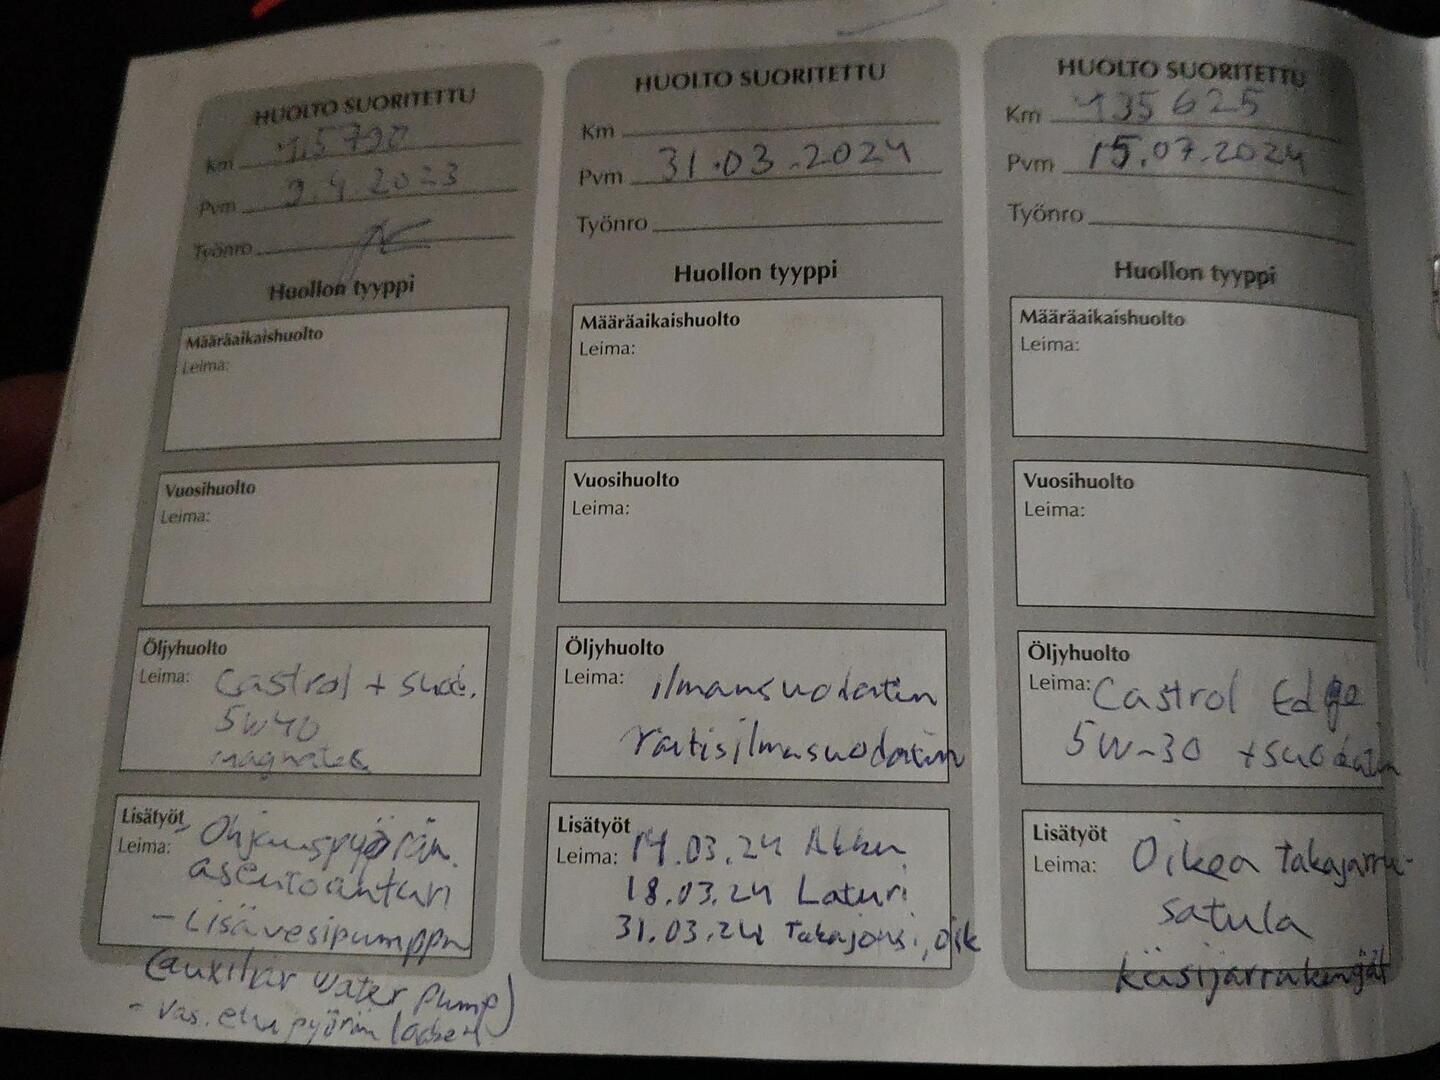 HUOLTO SUORITETTU
Km
Pvm 9.4.2023
Työnro
Huollon tyyppi
Määräaikaishuolto
Leima:
Vuosihuolto
Leima:
Öljyhuolto
Leima: Castrol + suod.
5W40
magnatec
Lisätyöt
Leima: - Ohjauspyörän
asentoanturi
- Lisävesipumppu
(auxiliar water pump)
- Vas. etupyörän laakeri
HUOLTO SUORITETTU
Km
Pvm 31.03.2024
Työnro
Huollon tyyppi
Määräaikaishuolto
Leima:
Vuosihuolto
Leima:
Öljyhuolto
Leima: ilmansuodatin
raitisilmasuodatin
Lisätyöt
Leima: 14.03.24 Akku
18.03.24 Laturi
31.03.24 Takajousi, oik
HUOLTO SUORITETTU
Km 135625
Pvm 15.07.2024
Työnro
Huollon tyyppi
Määräaikaishuolto
Leima:
Vuosihuolto
Leima:
Öljyhuolto
Leima: Castrol Edge
5W-30 +suodatin
Lisätyöt
Leima: Oikea takajarru-
satula
käsijarrukengät